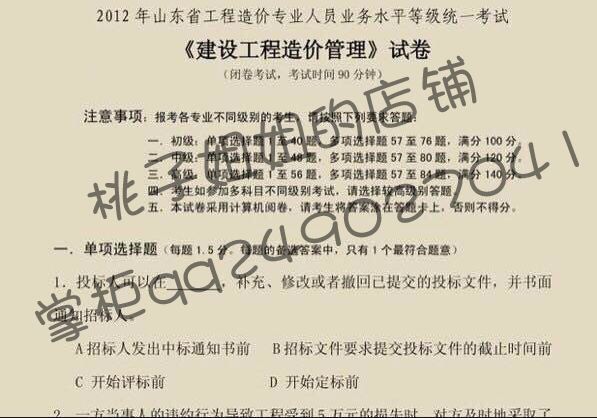 2012 年山东省工程造价专业人员业务水平等级统一考试
《建设工程造价管理》试卷
（闭卷考试，考试时间 90 分钟）
注意事项：报考各专业不同级别的考生，请按照下列要求答题。
一．初级：单项选择题 1 至 40 题，多项选择题 57 至 76 题，满分 100 分。
二．中级：单项选择题 1 至 48 题，多项选择题 57 至 80 题，满分 120 分。
三．高级：单项选择题 1 至 56 题，多项选择题 57 至 84 题，满分 140 分
四．考生如参加多科目不同级别考试，请选择较高级别答题。
五．本试卷采用计算机阅卷，请考生将答案涂在答题卡上，否则不得分。
一．单项选择题（每题 1.5 分。每题的备选答案中，只有 1 个最符合题意）
1．投标人可以在______，补充、修改或者撤回已提交的投标文件，并书面
通知招标人。
A 招标人发出中标通知书前 B 招标文件要求提交投标文件的截止时间前
C 开始评标前 D 开始定标前
2．一方当事人的违约行为导致工程受到 5 万元的损失时，对方及时地采取了
桃子姐姐的店铺
掌柜qq249027041